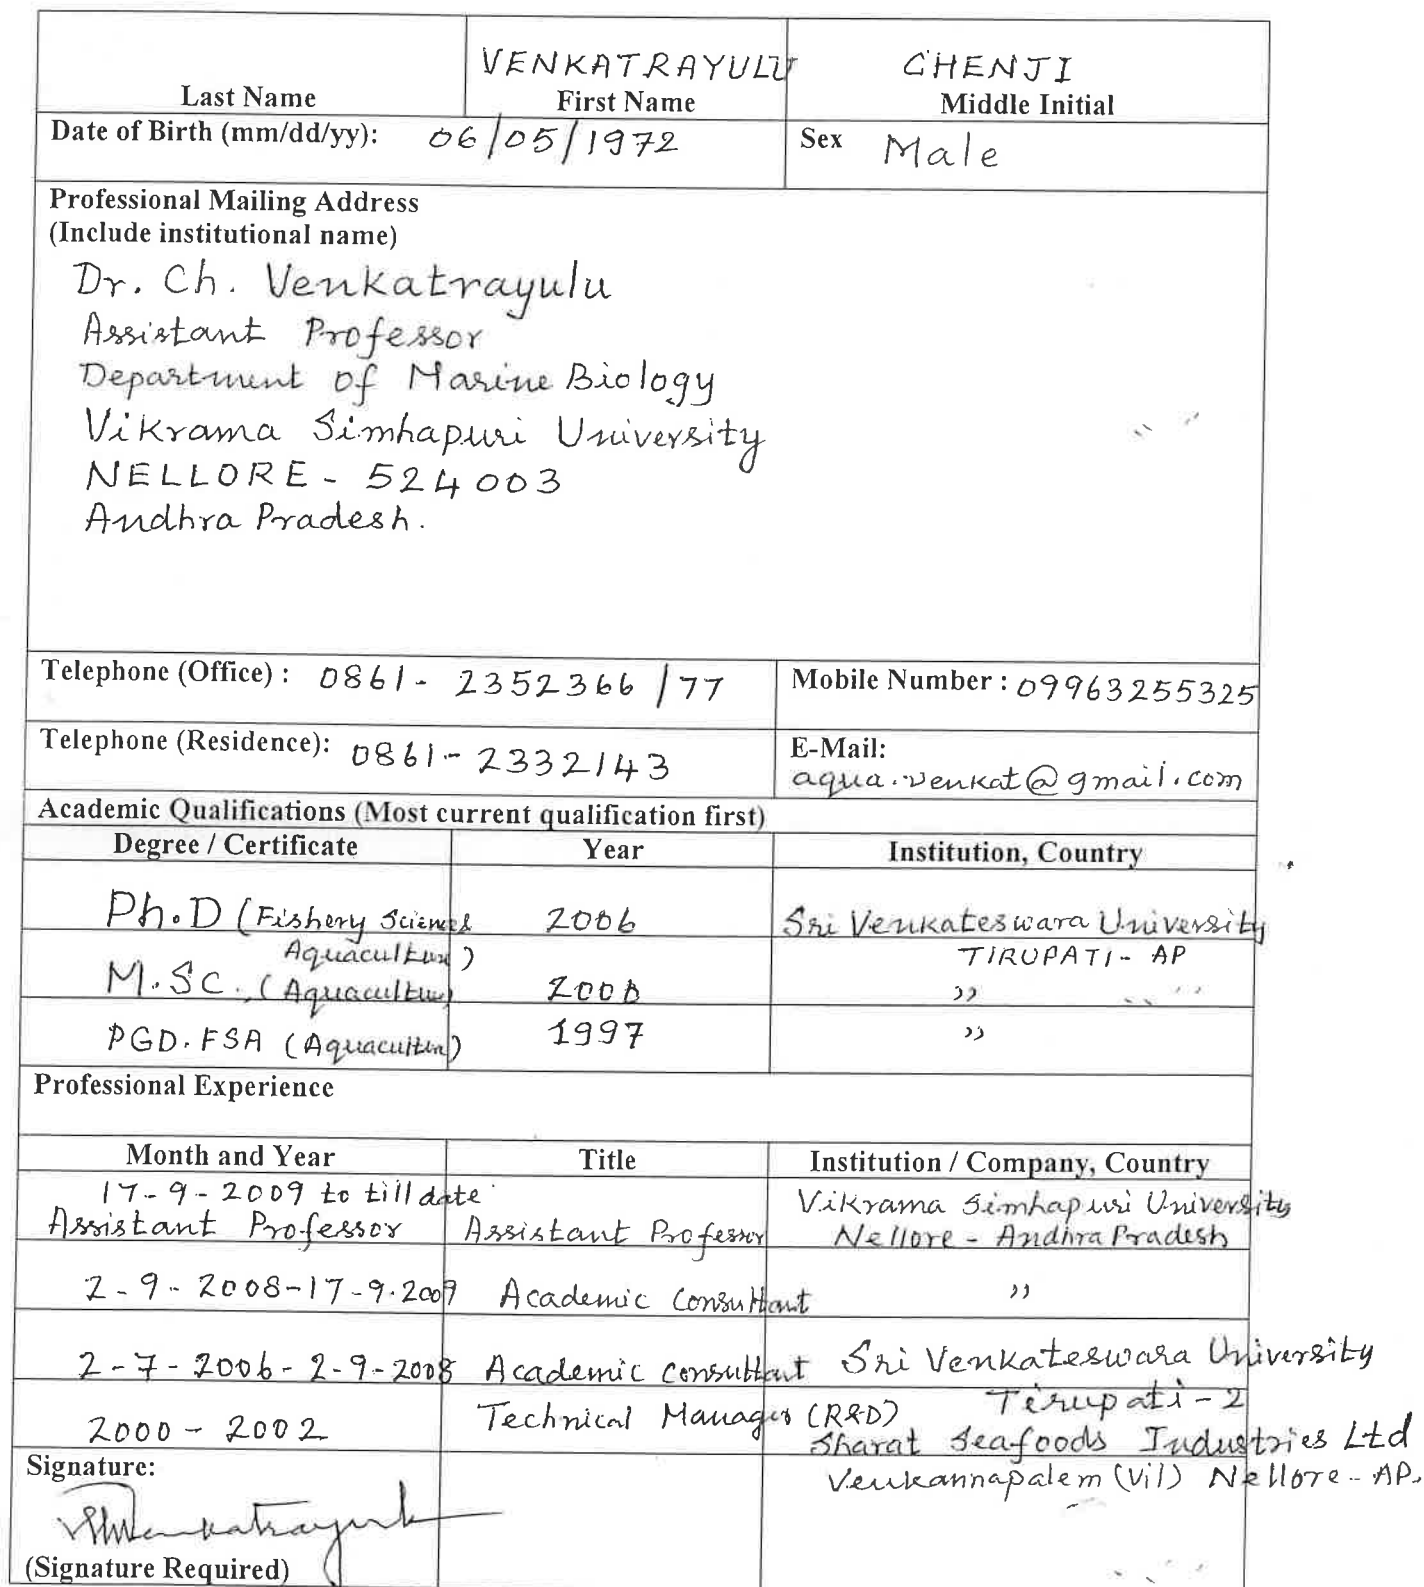 VENKATRAYULU CHENJI
Last Name First Name Middle Initial
Date of Birth (mm/dd/yy): 06/05/1972 Sex Male
Professional Mailing Address
(Include institutional name)
Dr. Ch. Venkatrayulu
Assistant Professor
Department of Marine Biology
Vikrama Simhapuri University
NELLORE - 524003
Andhra Pradesh.
Telephone (Office) : 0861- 2352366 /77 Mobile Number : 09963255325
Telephone (Residence): 0861- 2332143 E-Mail:
aqua.venkat@gmail.com
Academic Qualifications (Most current qualification first)
Degree / Certificate Year Institution, Country
Ph.D (Fishery Science 2006 Sri Venkateswara University
Aquaculture) TIRUPATI - AP
M.SC., (Aquaculture) 2000 ,,
PGD.FSA (Aquaculture) 1997 ,,
Professional Experience
Month and Year Title Institution / Company, Country
17-9-2009 to till date Vikrama Simhapuri University
Assistant Professor Assistant Professor Nellore - Andhra Pradesh
2-9-2008-17-9.2009 Academic Consultant ,,
2-7-2006-2-9-2008 Academic consultant Sri Venkateswara University
Tirupati-2
2000 - 2002 Technical Manager (R&D) Sharat Seafoods Industries Ltd
Venkannapalem (Vil) Nellore - AP.
Signature:
Venkatrayulu
(Signature Required)